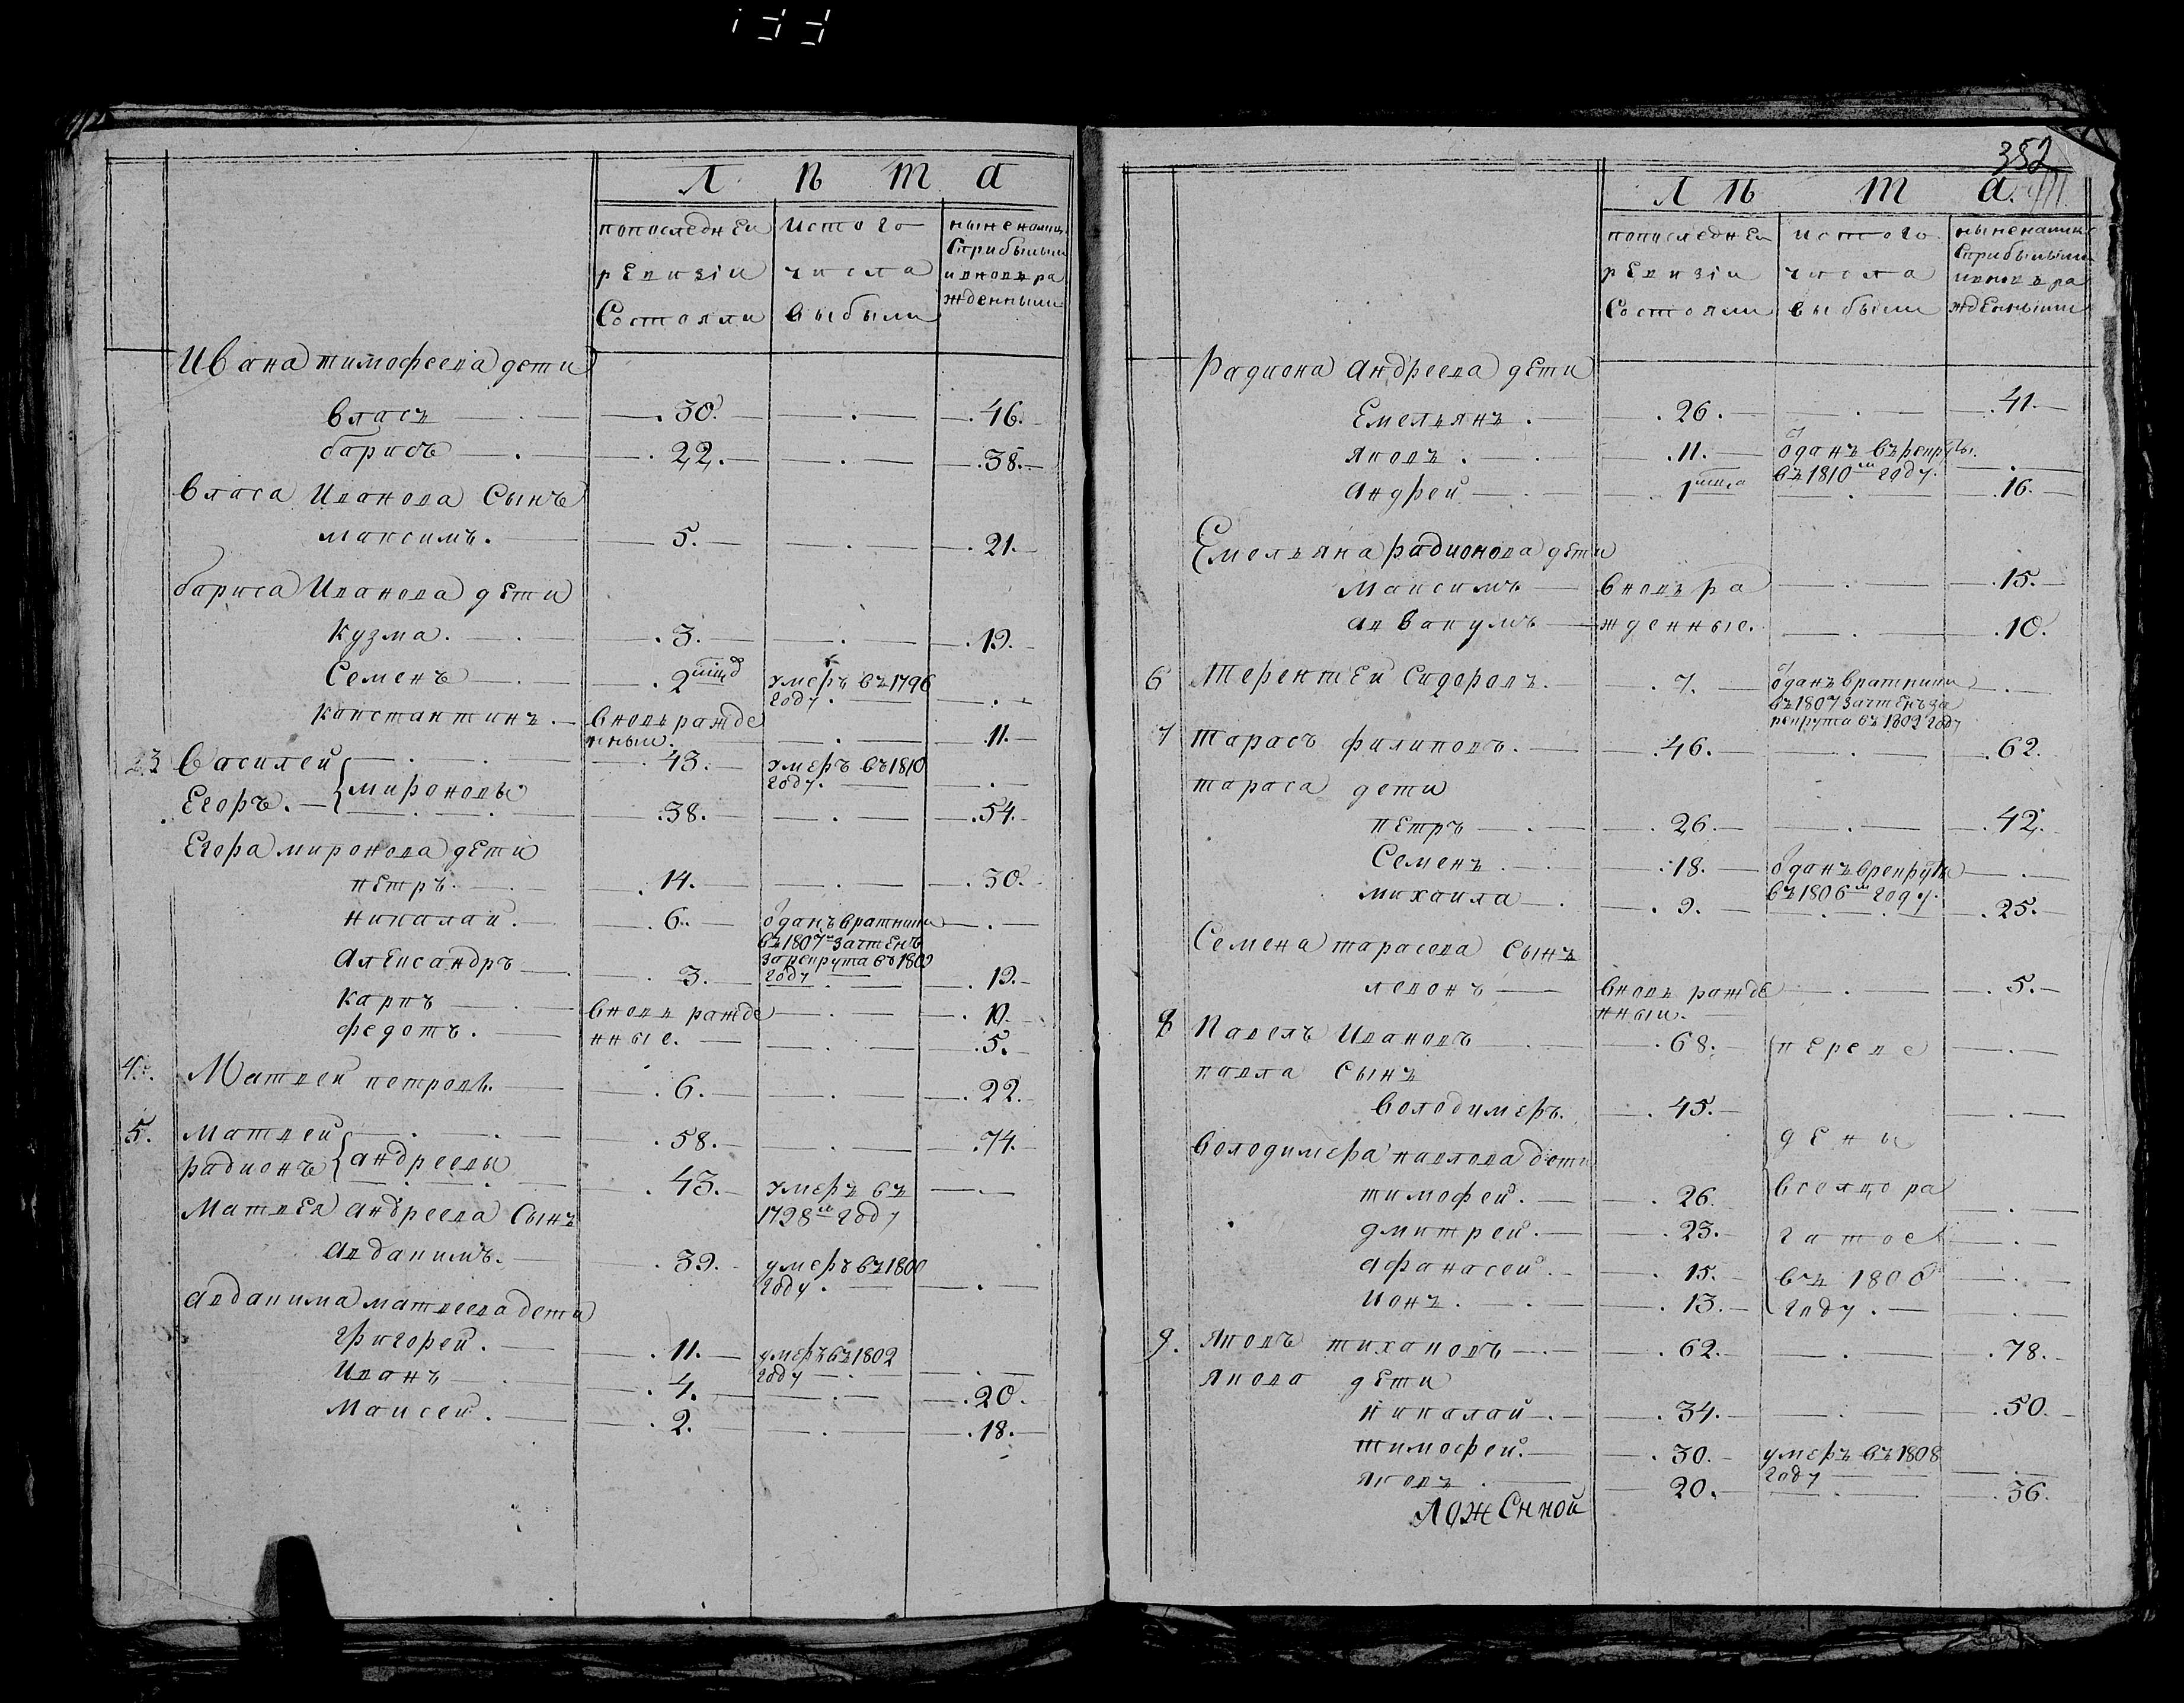 Л ѣ т а
попоследнеи изтого ныненалицо
ревизіи числа Сприбылыми
Состояли выбыли ивновь ра
жденными
Ивана тимофеева дети
власъ 30. 46.
барисъ 22. 38.
власа Иванова Сынъ
максимъ. 5. 21.
бариса Иванова дети
Кузма. 3. 19.
Семенъ 2 умеръ въ 1796
году.
Константинъ. вновь ражде
нныи. 11.
3 Василей 43. умеръ въ 1810
{мироновы году.
Егоръ. 38. 54.
Егора миронова дети
петръ. 14. 30.
николай. 6. ѿданъ вратники
въ 1807 зачтенъ
за рекрута въ 1809
Александръ 3. году 19.
карпъ вновь ражде 10.
федотъ. нные. 5.
4. Матвеи петровъ. 6. 22.
5. Матвей 58. 74.
радионъ {андреевы 43. умеръ въ
1798 м году
Матвея андреева Сынъ
Авданимъ. 39. умеръ въ 1800
году.
авданима матвеева дети
григорей. 11. умеръ въ 1802
году
Иванъ 4. 20.
Маисей. 2. 18.
352
Л ѣ т а.
попоследнеи изтого ныненалицо
ревизіи числа Сприбылыми
Состояли выбыли ивновь ра
жденными
Радиона андреева дети
Емельянъ. 26. 41.
яковъ. 11. ѿданъ въ рекруты.
въ 1810 м году.
Андрей 1 16.
Емельяна радионова дети
Максимъ вновь ра 15.
аввакумъ жденные. 10.
6 Терентей Сидоровъ. 7. ѿданъ вратники
въ 1807 зачтенъ за
рекрута въ 1809 году
7 тарасъ филиповъ. 46. 62.
тараса дети
петръ 26. 42.
Семенъ. 18. ѿданъ врекруты
въ 1806 м году.
михаила 9. 25.
Семена тарасова Сынъ
левонъ вновь ражде 5.
нныи.
8 Павелъ Ивановъ 68. переве
павла Сынъ
володимеръ. 45.
дены
володимера павлова дети
тимофей. 26. вселцо ра
дмитрей. 23. гатое
афанасей. 15. въ 1806
Ионъ. 13. году.
9. яковъ тихановъ 62. 78.
якова дети
николай 34. 50.
тимофей. 30. умеръ въ 1808
году
яковъ. 20. 36.